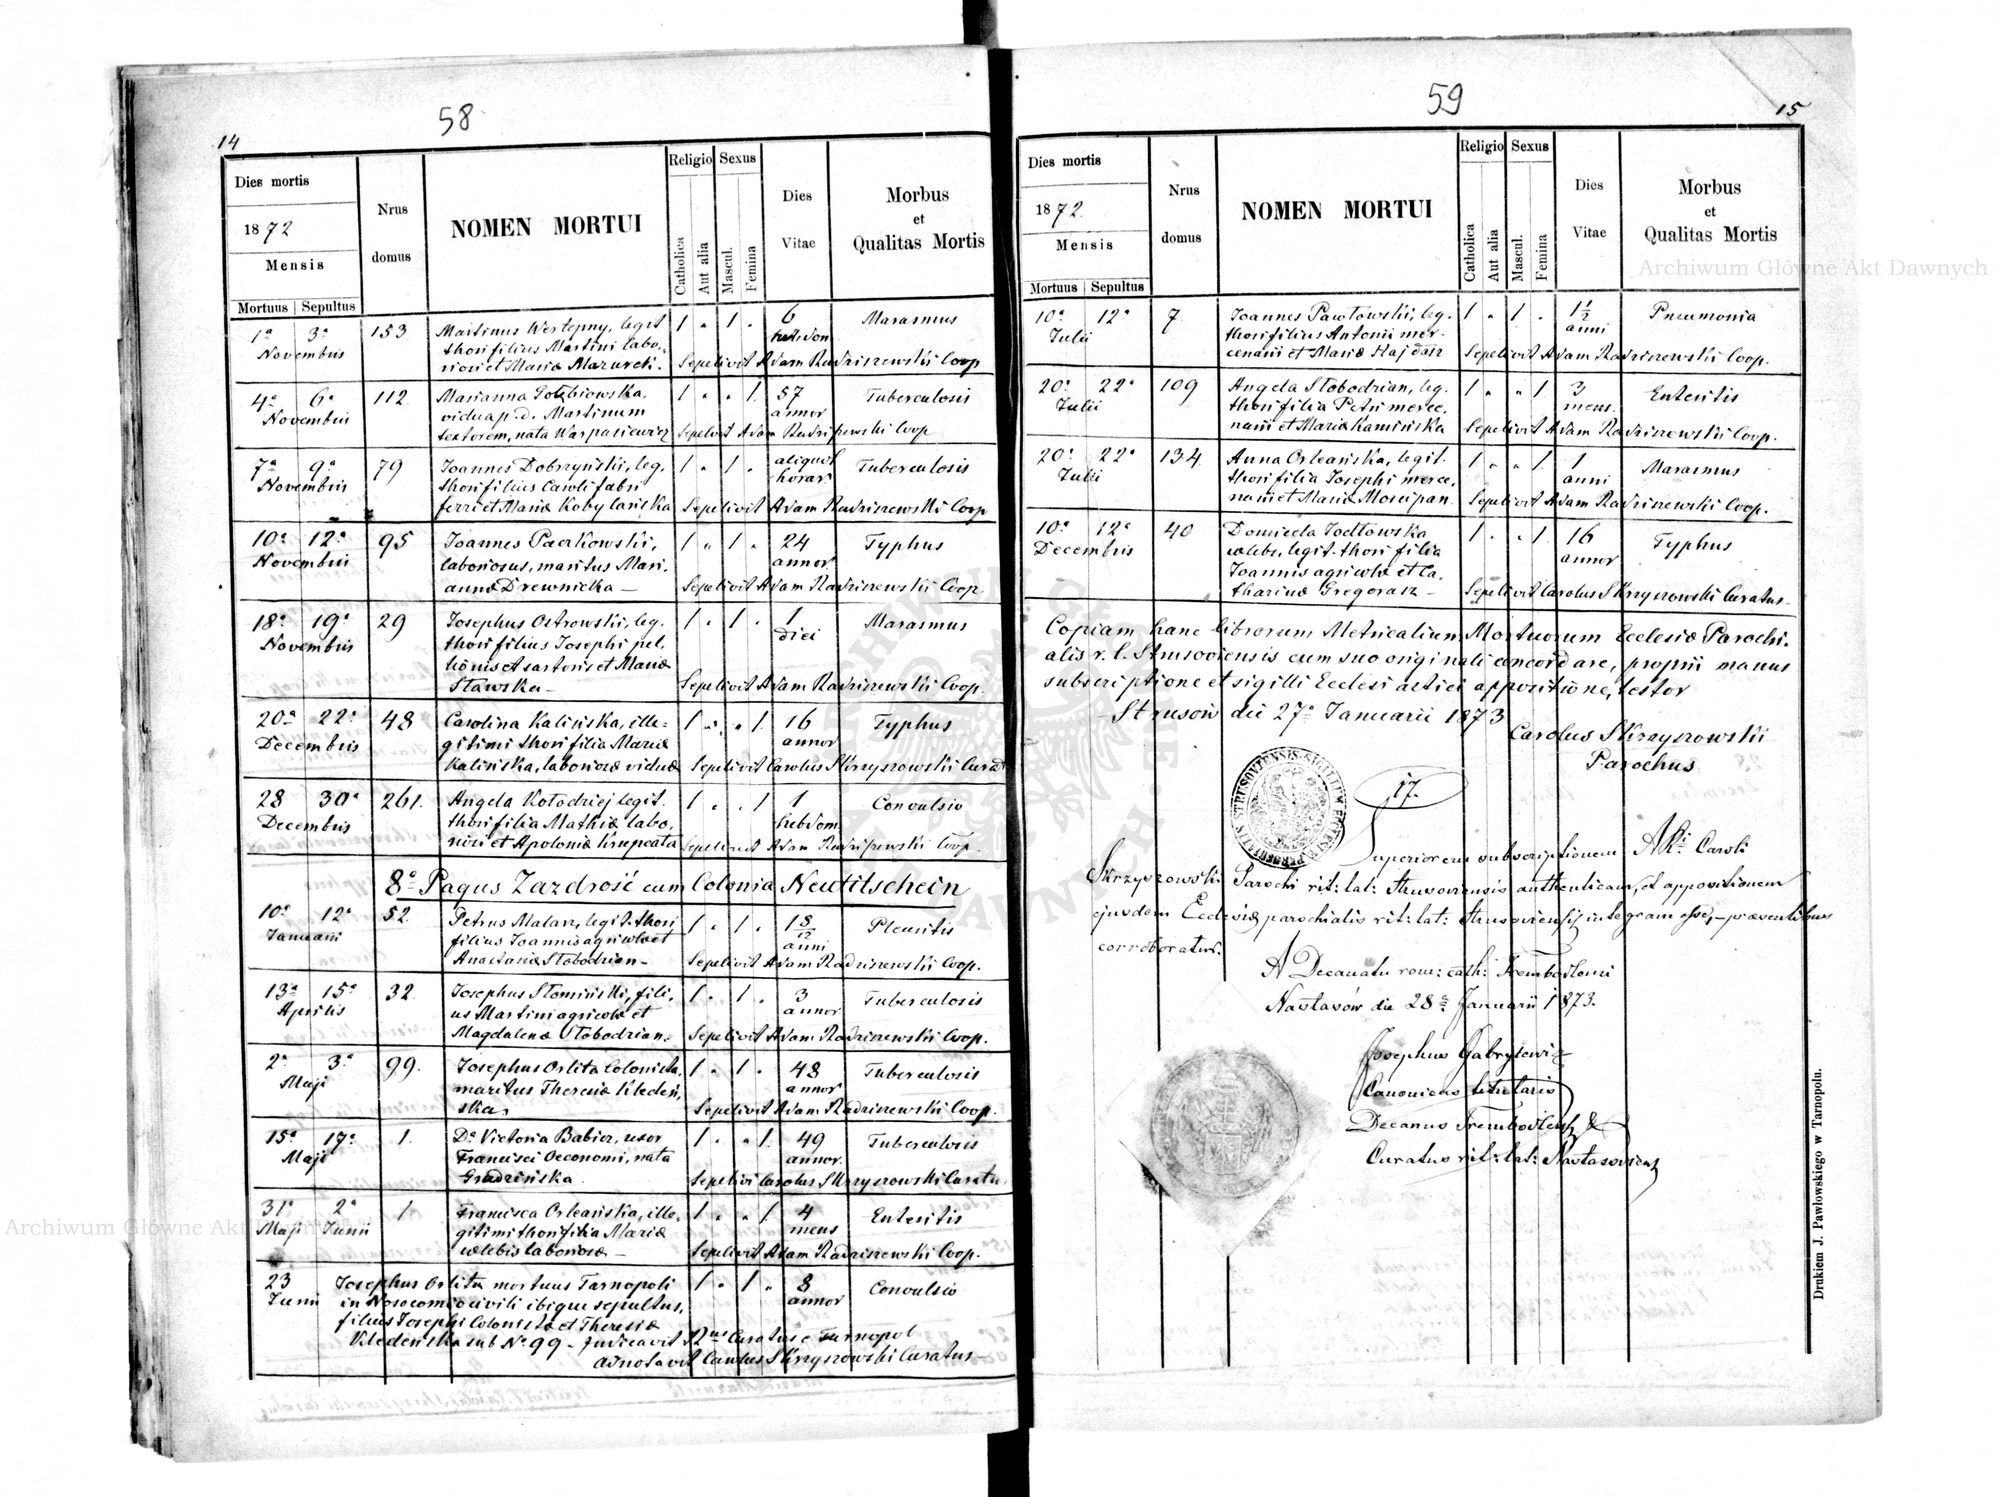 58
14
Dies mortis
1872
Mensis
Mortuus Sepultus
Nrus domus
NOMEN MORTUI
Religio
Catholica
Aut alia
Sexus
Mascul.
Femina
Dies Vitae
Morbus et Qualitas Mortis
1a 3a 153 Martinus Westepny, legit 1 " 1 " 6 Marasmus
Novembris thori filius Martini labo- hebdom
riosi et Mariæ Mazurek. Sepelivit Adam Radziszewski Coop
4a 6a 112 Marianna Gołębiowska, 1 " " 1 57 Tuberculosis
Novembris vidua p. d. Martinum annor
textorem, nata Warpasiewicz Sepelivit Adam Radziszewski Coop
7a 9a 79 Joannes Dobrzyński, leg. 1 " 1 " aliquot Tuberculosis
Novembris thori filius Caroli fabri horar
ferri et Mariæ Kobylańska Sepelivit Adam Radziszewski Coop
10a 12a 95 Joannes Paczkowski, 1 " 1 " 24 Typhus
Novembris laboriosus, maritus Mari- annor
annæ Drewnicka — Sepelivit Adam Radziszewski Coop.
18a 19a 29 Josephus Ostrowski, leg. 1 " 1 " 1 Marasmus
Novembris thori filius Josephi pel- diei
lionis et sartoris et Mariæ
Stawska — Sepelivit Adam Radziszewski Coop.
20a 22a 48 Carolina Kalińska, ille- 1 " " 1 16 Typhus
Decembris gitimi thori filia Mariæ annor
Kalińska, laboriosæ viduæ Sepelivit Carolus Skrzyszowski Curat
28 30a 261. Angela Kołodziej legit. 1 " " 1 1 Convulsio
Decembris thori filia Mathiæ labo- hebdom.
riosi et Apoloniæ Krupcata Sepelivit Adam Radziszewski Coop.
8o Pagus Zazdrość cum Colonia Neutitschein
10a 12a 52. Petrus Malarz, legit. thori 1 " 1 " 1 5/12 Pleuritis
Januarii filius Joannis agricolæ et anni
Anastasiæ Słobodzian — Sepelivit Adam Radziszewski Coop.
13a 15a 32. Josephus Słomiński, fili- 1 " 1 " 3 Tuberculosis
Aprilis us Martini agricolæ et annor
Magdalenæ Słobodzian. Sepelivit Adam Radziszewski Coop.
2a 3a 99. Josephus Orlita Colonista 1 " 1 " 48 Tuberculosis
Maji maritus Theresiæ Kleden- annor
ska, Sepelivit Adam Radziszewski Coop.
15a 17a 1. Da Victoria Babier, uxor 1 " " 1 49 Tuberculosis
Maji Francisci Oeconomi, nata annor.
Grudzińska. Sepelivi Carolus Skrzyszowski Curatus
31a 2a 1. Francisca Orleańska, ille- 1 " " 1 4 Enteritis
Maji Junii gitimi thori filia Mariæ mens
cælebis laboriosæ — Sepelivit Adam Radziszewski Coop.
23 Josephus Orlita mortuus Tarnopoli 1 " 1 " 8 Convulsio
Junii in Nosocomio civili ibique sepultus, annor
filius Josephi Colonistæ et Theresiæ
Kledenska sub No 99 — Indicavit Rnus Curatus e Tarnopol
adnotavit Carolus Skrzyszowski Curatus —
59
15
Dies mortis
1872.
Mensis
Mortuus Sepultus
Nrus domus
NOMEN MORTUI
Religio
Catholica
Aut alia
Sexus
Mascul.
Femina
Dies Vitae
Morbus et Qualitas Mortis
10a 12a 7 Joannes Pawłowski, leg. 1 " 1 " 1 1/2 Pneumonia
Julii thori filius Antonii mer- anni
cenarii et Mariæ Hajdasz Sepelivit Adam Radziszewski Coop.
20a 22a 109 Angela Słobodzian, leg. 1 " " 1 3 Enteritis
Julii thori filia Petri merce- mens.
narii et Mariæ Kamińska Sepelivit Adam Radziszewski Coop.
20a 22a 134. Anna Orleańska, legit. 1 " " 1 1 Marasmus
Julii thori filia Josephi merce- anni
narii et Mariæ Moscipan. Sepelivit Adam Radziszewski Coop.
10a 12a 40 Domicela Jodłowska 1 " " 1 16 Typhus
Decembris cælebs, legit. thori filia annor
Joannis agricolæ et Ca-
tharinæ Gregorasz — Sepelivit Carolus Skrzyszowski Curatus —
Copiam hanc librorum Metricalium Mortuorum Ecclesiæ Parochi-
alis r. l. Strusoviensis cum suo originali concordare, proprii manus
subscriptione et sigilli Ecclesiastici appositione, testor
— Strusów die 27a Januarii 1873
Carolus Skrzyszowski
Parochus
17.
Superiorem subscriptionem ARi Caroli
Skrzyszowski Parochi rit: lat: Strusoviensis authenticam, et appositionem
ejusdem Ecclesiæ parochialis rit: lat: Strusoviensis integram esse, — præsentibus
corroboratur.
A Decanatu rom: cath: Trembowlensi
Nastasów die 28a Januarii 1873.
Josephus Gabrylewicz
Canonicus titularis
Decanus Trembowlensis &
Curatus rit: lat: Nastasoviensis
Drukiem J. Pawłowskiego w Tarnopolu.
Archiwum Główne Akt Dawnych
Archiwum Główne Akt Dawnych